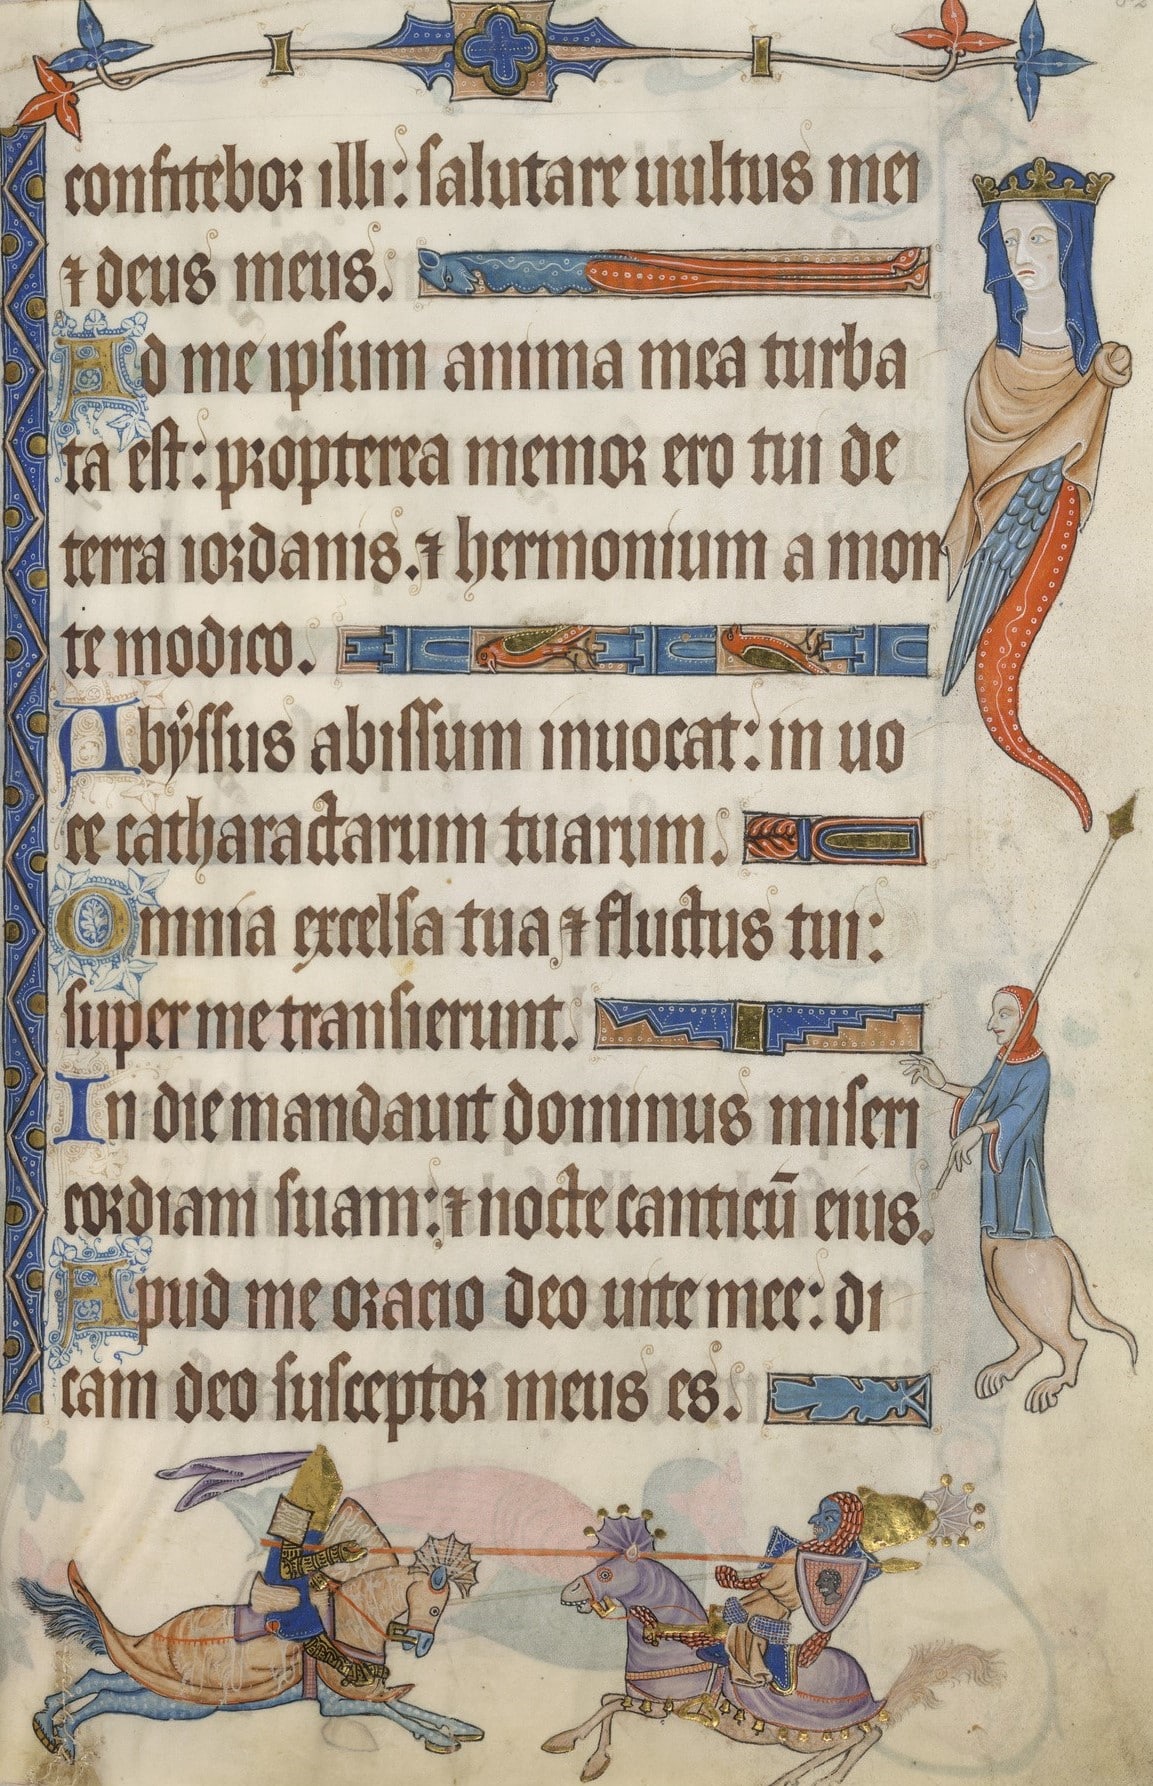 confitebor illi: salutare uultus mei
⁊ deus meus.
Ad me ipsum anima mea turba
ta est: propterea memor ero tui de
terra iordanis. ⁊ hermonium a mon
te modico.
Abyssus abissum inuocat: in uo
ce catharactarum tuarum.
Omnia excelsa tua ⁊ fluctus tui:
super me transierunt.
In die mandauit dominus miseri
cordiam suam: ⁊ nocte canticū eius.
Apud me oracio deo uite mee: di
cam deo susceptor meus es.